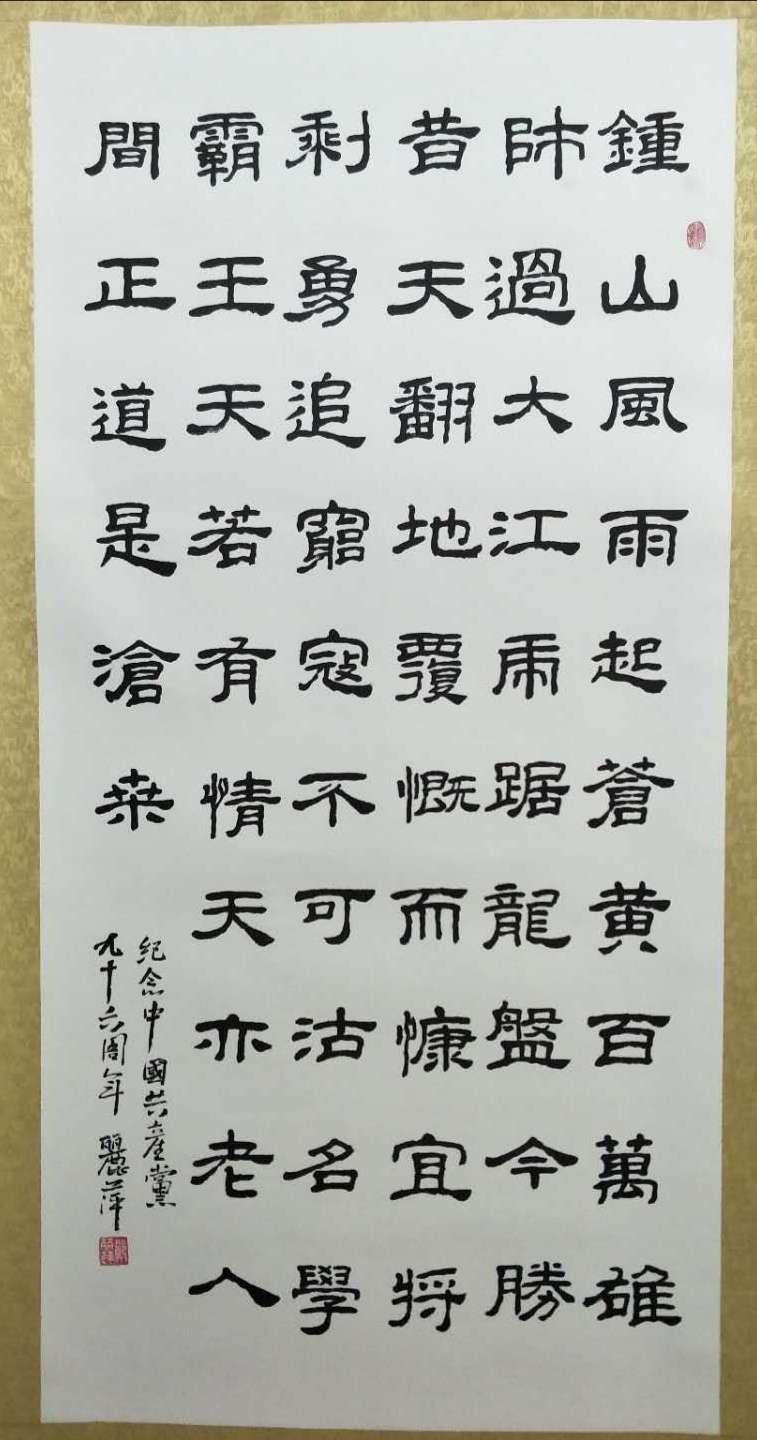 鍾山風雨起蒼黄百萬雄
師過大江虎踞龍盤今勝
昔天翻地覆慨而慷宜將
剩勇追窮寇不可沽名學
霸王天若有情天亦老人
間正道是滄桒
紀念中國共產黨
九十六周年 麗萍